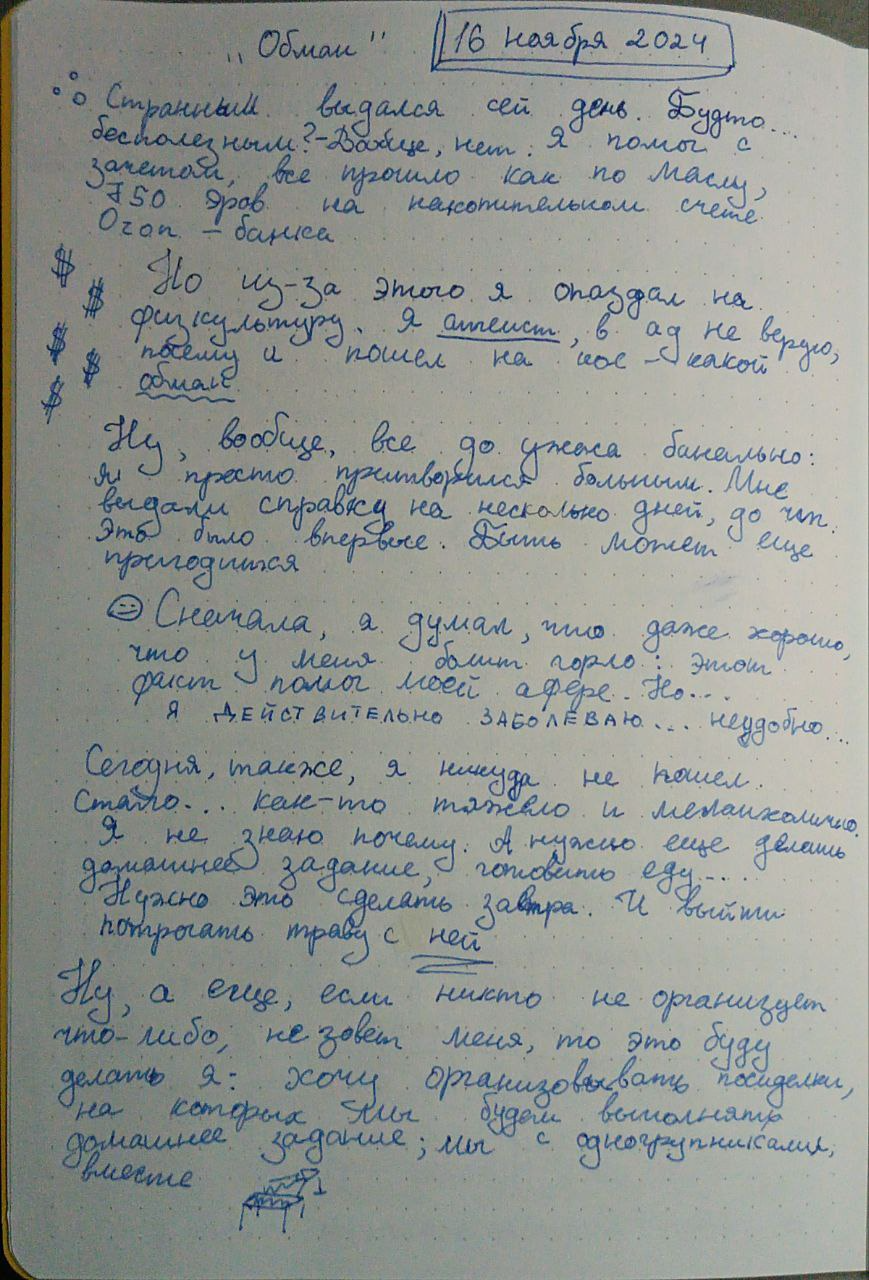 „Обман” 16 ноября 2024
Странным выдался сей день. Будто...
бесполезным? - Вообще, нет. Я помог с
зачетом, все прошло как по маслу,
750 яров на накопительном счете
Ozon - банка
Но из-за этого я опаздал на
физкультуру. Я атеист, в ад не верую,
посему и пошел на кое - какой
обман
Ну, вообще, все до ужаса банально:
я просто притворился больным. Мне
выдали справку на несколько дней, до чт.
Это было впервые. Быть может еще
пригодится
Сначала, я думал, что даже хорошо,
что у меня болит горло: этот
факт помог моей афере. Но...
я ДЕЙСТВИТЕЛЬНО ЗАБОЛЕВАЮ... неудобно...
Сегодня, также, я никуда не пошел.
Стало... как-то тяжело и меланхолично.
Я не знаю почему. А нужно еще делать
домашнее задание, готовить еду...
Нужно это сделать завтра. И выйти
потрогать траву с ней
Ну, а еще, если никто не организует
что-либо, не зовет меня, то это буду
делать я: хочу организовывать посиделки,
на которых мы будем выполнять
домашнее задание; мы с одногрупниками,
вместе